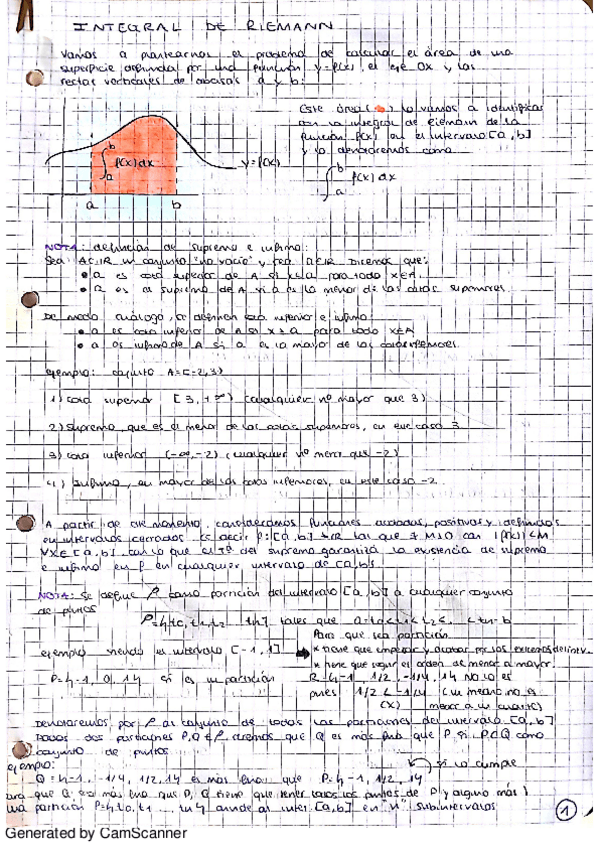 INTEGRAL DE RIEMANN
Vamos a plantearnos el problema de calcular el área de una
superficie definida por una función y=f(x), el eje Ox y las
rectas verticales de abscisas a y b:
Este área lo vamos a identificar
con la integral de Riemann de la
función f(x) en el intervalo [a,b]
y la denotaremos como
∫ₐᵇ f(x) dx
∫ₐᵇ f(x) dx
y=f(x)
a b
NOTA: definición de supremo e ínfimo:
Sea A⊂ℝ un conjunto "no vacío" y sea a∈ℝ Decimos que:
• a es cota superior de A si x≤a para todo x∈A.
• a es el supremo de A si a es la menor de las cotas superiores.
De modo análogo, se definen cota inferior e ínfimo:
• a es cota inferior de A si x≥a para todo x∈A
• a es ínfimo de A si a es la mayor de las cotas inferiores.
ejemplo: conjunto A=[-2,3)
1) cota superior [3,+∞) (cualquier nº mayor que 3)
2) supremo, que es el menor de las cotas superiores, en ese caso 3
3) cota inferior (-∞,-2) (cualquier nº menor que -2)
4) ínfimo, el mayor de las cotas inferiores, en este caso -2.
A partir de ese momento, consideramos funciones acotadas, positivas y definidas
en intervalos cerrados es decir f:[a,b] → ℝ las que ∃ M>0 con |f(x)|<M
∀x∈[a,b] que el Tª del supremo garantiza la existencia de supremo
e ínfimo en f en cualquier intervalo de [a,b].
NOTA: se define P como partición del intervalo [a,b] a cualquier conjunto
de puntos
P={t0, t1, t2 tn} tales que a=t0<t1<t2< <tn=b
Para que sea partición
ejemplo siendo el intervalo [-1,1]
* tiene que empezar y acabar por los extremos del interv.
* tiene que seguir el orden de menor a mayor.
P={-1, 0, 1} si es una partición
R={-1, 1/2, -1/4, 1} No lo es
pues 1/2 < -1/4 (un medio no es
(X) menor a un cuarto)
Denotaremos por P al conjunto de todas las particiones del intervalo [a,b]
Dadas dos particiones P,Q∈P diremos que Q es más fina que P si P⊂Q como
conjunto de puntos.
si lo cumple
ejemplo:
Q={-1, -1/4, 1/2, 1} es más fina que P={-1, 1/2, 1}
para que Q sea más fina que P, Q tiene que tener todos los puntos de P (y alguno más)
una partición P={t0, t1 ... tn} divide al inter. [a,b] en "n" subintervalos
1
Generated by CamScanner